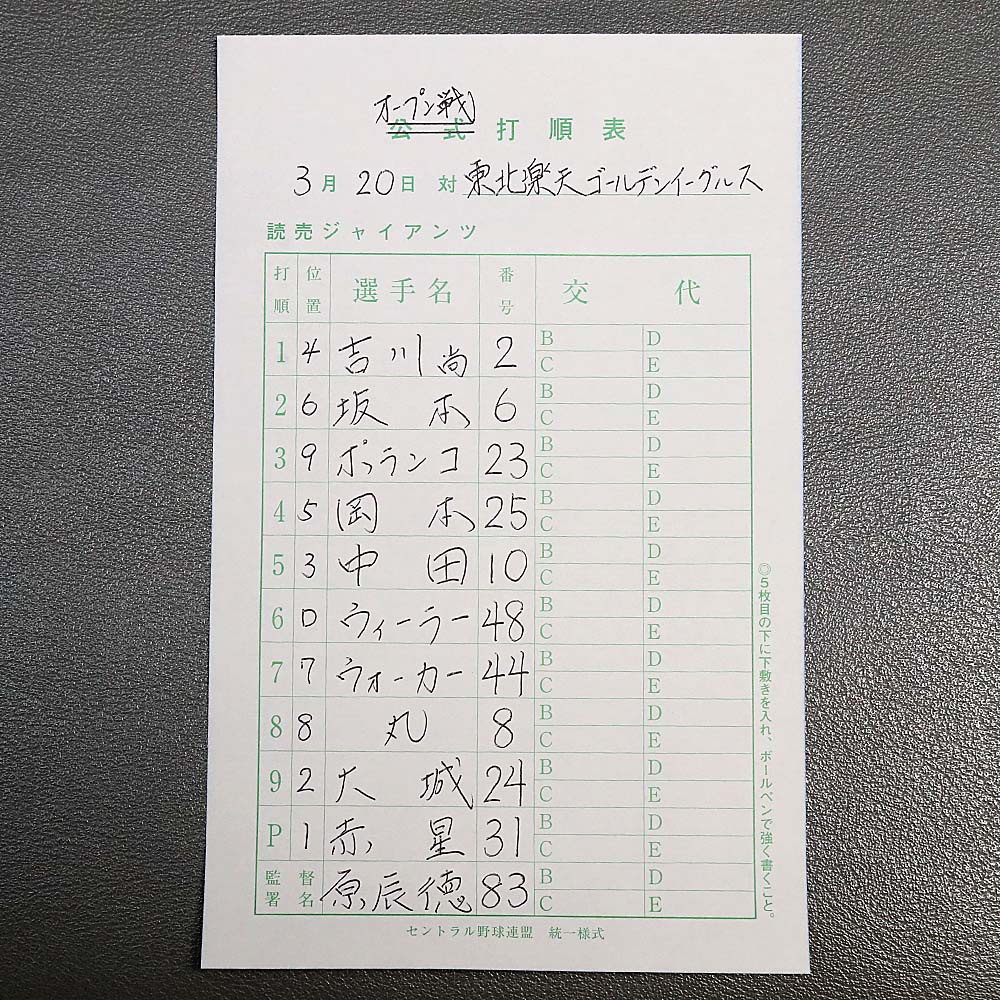 オープン戦
公式打順表
3月20日 対 東北楽天ゴールデンイーグルス
読売ジャイアンツ
打順 位置 選手名 番号 交代
1 4 吉川尚 2 B D
C E
2 6 坂本 6 B D
C E
3 9 ポランコ 23 B D
C E
4 5 岡本 25 B D
C E
5 3 中田 10 B D
C E
6 D ウィーラー 48 B D
C E
7 7 ウォーカー 44 B D
C E
8 8 丸 8 B D
C E
9 2 大城 24 B D
C E
P 1 赤星 31 B D
C E
監督署名 原辰徳 83 B D
C E
セントラル野球連盟 統一様式
◎5枚目の下に下敷きを入れ、ボールペンで強く書くこと。